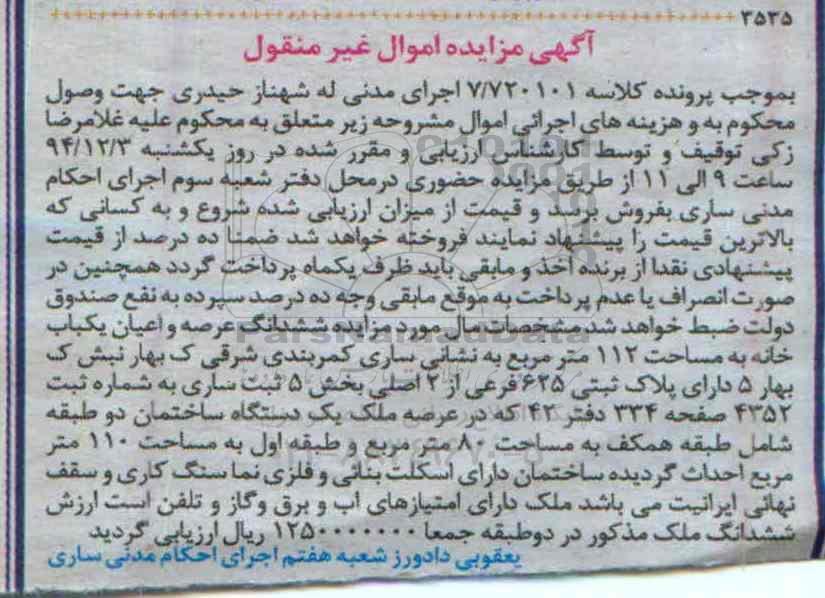 ۳۵۳۵
آگهی مزایده اموال غیر منقول
بموجب پرونده کلاسه ۷/۷۲۰۱۰۱ اجرای مدنی له شهناز حیدری جهت وصول
محکوم به و هزینه های اجرائی اموال مشروحه زیر متعلق به محکوم علیه غلامرضا
زکی توقیف و توسط کارشناس ارزیابی و مقرر شده در روز یکشنبه ۹۴/۱۲/۳
ساعت ۹ الی ۱۱ از طریق مزایده حضوری درمحل دفتر شعبه سوم اجرای احکام
مدنی ساری بفروش برسد و قیمت از میزان ارزیابی شده شروع و به کسانی که
بالاترین قیمت را پیشنهاد نمایند فروخته خواهد شد ضمنا ده درصد از قیمت
پیشنهادی نقدا از برنده اخذ و مابقی باید ظرف یکماه پرداخت گردد همچنین در
صورت انصراف یا عدم پرداخت به موقع مابقی وجه ده درصد سپرده به نفع صندوق
دولت ضبط خواهد شد مشخصات مال مورد مزایده ششدانگ عرصه و اعیان یکباب
خانه به مساحت ۱۱۲ متر مربع به نشانی ساری کمربندی شرقی ک بهار نبش ک
بهار ۵ دارای پلاک ثبتی ۶۲۵ فرعی از ۲ اصلی بخش ۵ ثبت ساری به شماره ثبت
۴۳۵۲ صفحه ۳۳۴ دفتر ۴۲ که در عرصه ملک یک دستگاه ساختمان دو طبقه
شامل طبقه همکف به مساحت ۸۰ متر مربع و طبقه اول به مساحت ۱۱۰ متر
مربع احداث گردیده ساختمان دارای اسکلت بنائی و فلزی نما سنگ کاری و سقف
نهائی ایرانیت می باشد ملک دارای امتیازهای اب و برق وگاز و تلفن است ارزش
ششدانگ ملک مذکور در دوطبقه جمعا ۱۲۵۰۰۰۰۰۰۰ ریال ارزیابی گردید
یعقوبی دادورز شعبه هفتم اجرای احکام مدنی ساری
ParsNamadData